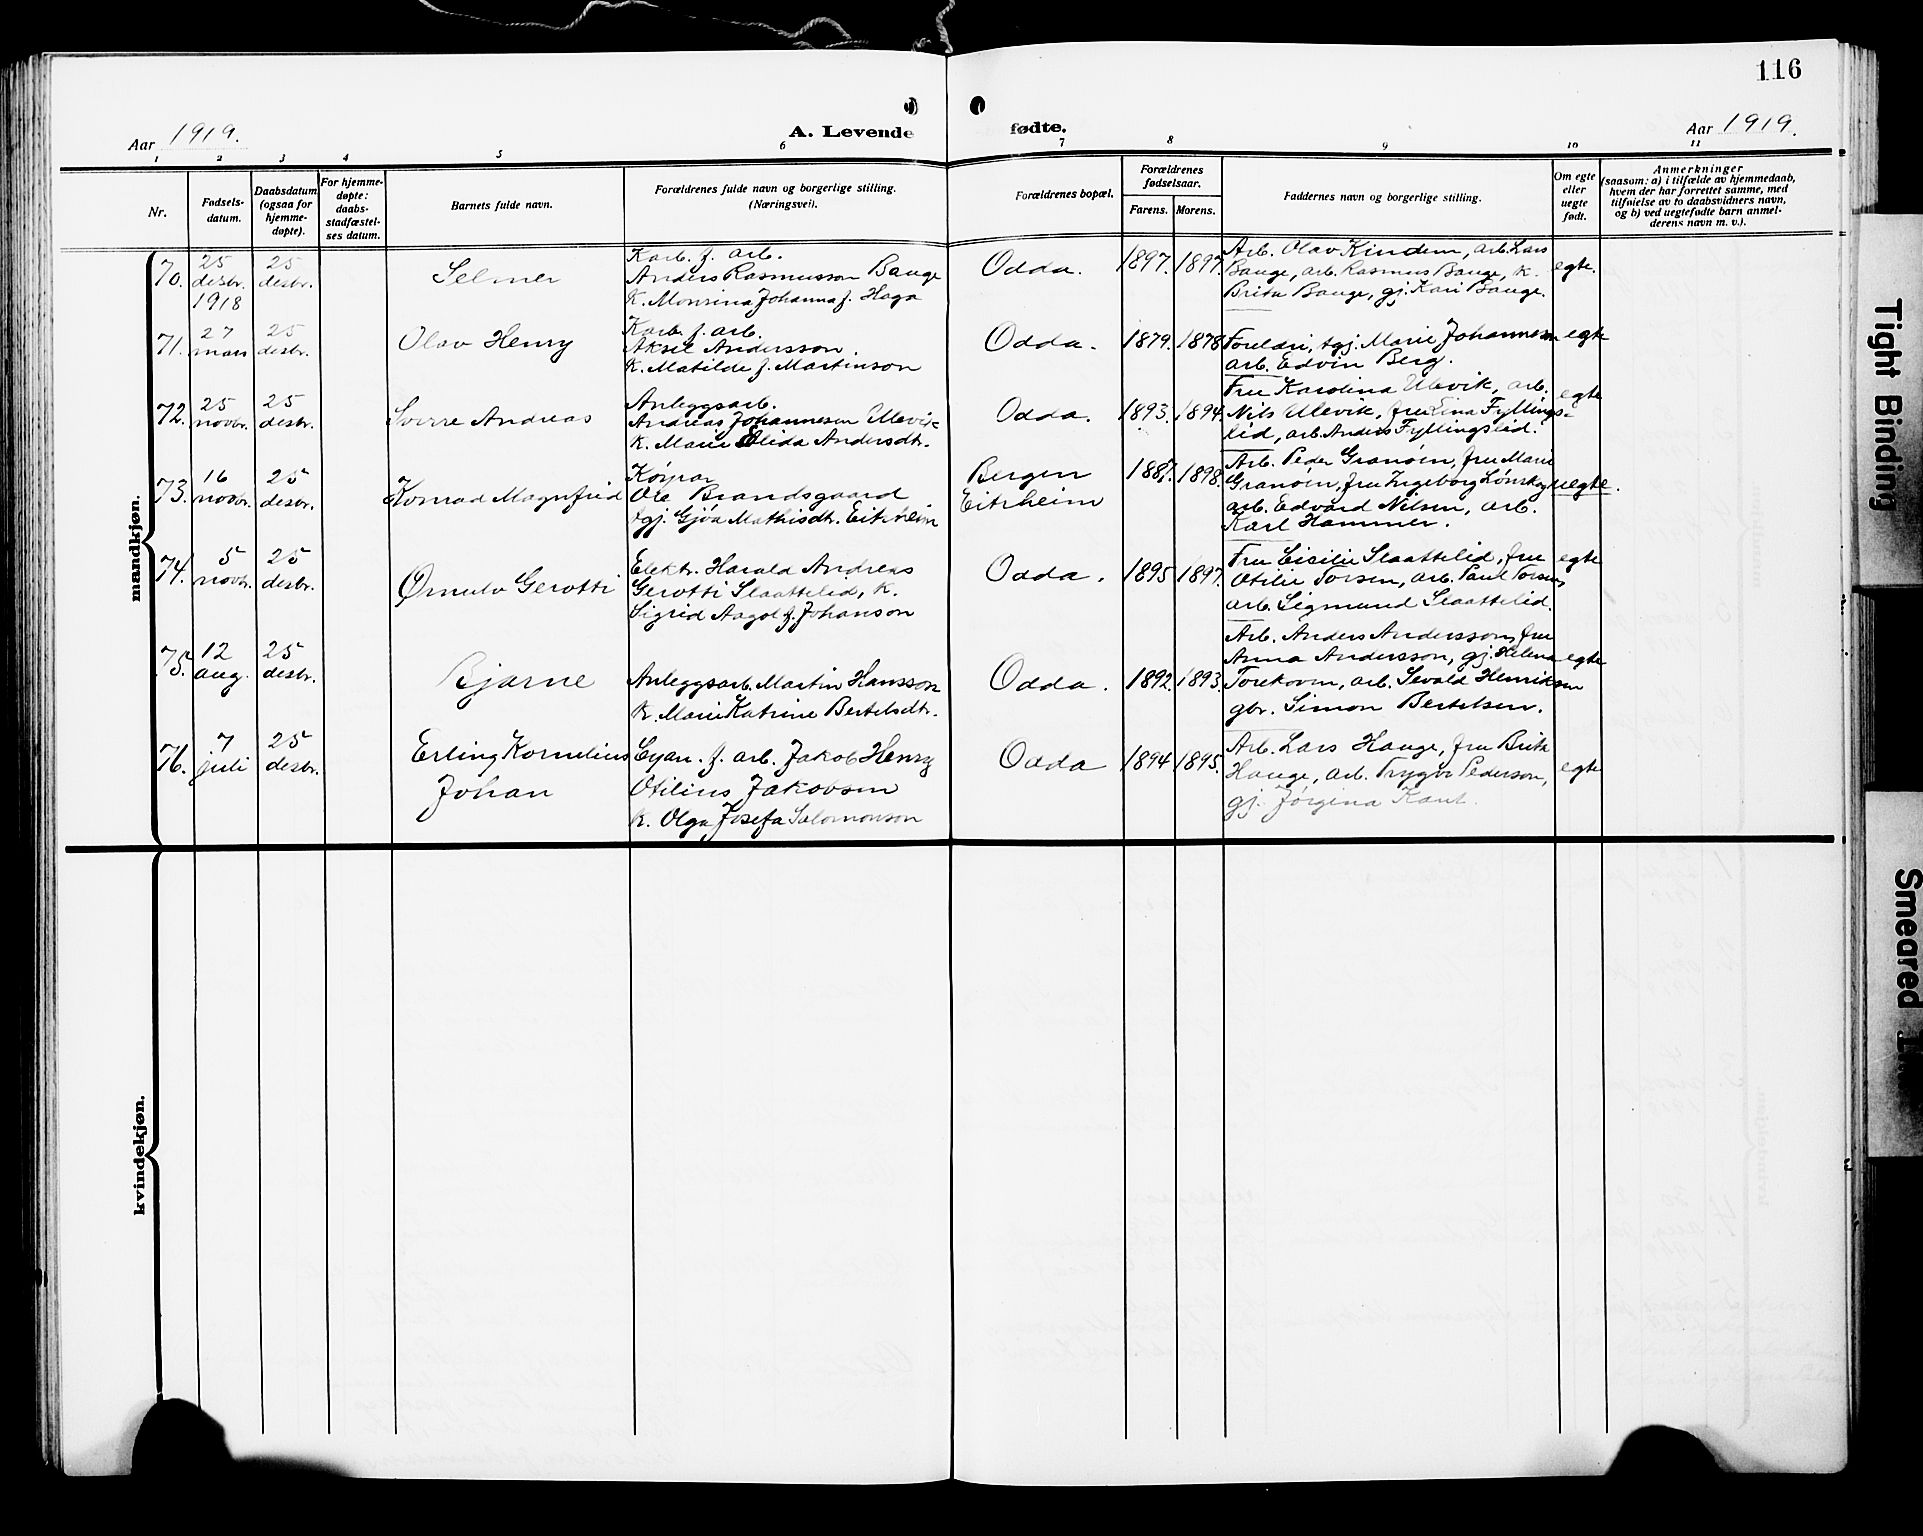 116
Aar 1919.
A. Levende fødte.
Aar 1919.
1 2 3 4 5 6 7 8 9 10 11
Nr.
Fødsels-
datum.
Daabsdatum
(ogsaa for
hjemme-
døpte).
For hjemme-
døpte:
daabs-
stadfæstel-
ses datum.
Barnets fulde navn.
Forældrenes fulde navn og borgerlige stilling.
(Næringsvei).
Forældrenes bopæl.
Forældrenes
fødselsaar.
Farens. Morens.
Faddernes navn og borgerlige stilling.
Om egte
eller
uegte
født.
Anmerkninger
(saasom: a) i tilfælde av hjemmedaab,
hvem der har forrettet samme, med
tilføielse av to daabsvidners navn,
og b) ved uegtefødte barn anmel-
derens navn m. v.).
mandkjøn.
70.
25
desbr.
1918
25
desbr.
Selmer
Karb. f. arb.
Anders Rasmusson Bauge
k. Monsina Johanna f. Haga
Odda.
1897. 1897.
Arb. Olav Kindem, arb. Lars
Bauge, arb. Rasmus Bauge, k.
Brita Bauge, gj. Kari Bauge.
egte.
71.
27
mars
25
desbr.
Olav Henry
Karb. f. arb.
Aksel Andersson.
k. Matilde f. Martinson
Odda.
1879. 1878
Foreldri, tgj. Marie Johannesen
arb. Edvin Berg.
egte
72.
25
novbr.
25
desbr.
Sverre Andreas
Anleggsarb.
Andreas Johannesen Ulevik
k. Marie Elida Andersdtr.
Odda.
1893. 1894.
Fru Karolina Ulevik, arb.
Nils Ulevik, fru Lina Fyllings-
lid, arb. Anders Fyllingslid.
egte
73.
16
novbr.
25
desbr.
Konrad Magnfrid
Ole Brandsgaard
tgj. Gjøa Mathisdtr. Eitrheim
Bergen
Eitrheim
1887. 1898.
Arb. Peder Granøien, fru Marie
Granøien, fru Ingeborg Lønskog
arb. Edvard Nilsen, arb.
Karl Hammer.
uegte.
74.
5
novbr.
25
desbr.
Ørnulv Gerotti
Elektr. Harald Andreas
Gerotti Slaattelid, k.
Sigrid Aagot f. Johanson
Odda.
1895 1897.
Fru Cicilie Slaattelid, fru
Otilie Torsen, arb. Paul Torsen,
arb. Sigmund Slaattelid.
egte
75.
12
aug.
25
desbr.
Bjarne
Anleggsarb. Martin Hansson
k. Marie Katrine Bertelsdtr.
Odda.
1892. 1893.
Arb. Anders Andersson, fru
Anna Andersson, gj. Helena
Torekoven, arb. Sevald Henriksen
gbr. Simon Bertelsen.
egte
76.
7
juli
25
desbr.
Erling Kornelius
Johan
Cyan. f. arb. Jakob Henry
Otilius Jakobsen
k. Olga Josefa Salomonson
Odda
1894. 1895.
Arb. Lars Hauge, fru Brita
Hauge, arb. Trygve Pederson,
gj. Jørgina Kant.
egte
kvindekjøn.
Tight Binding
Smeared